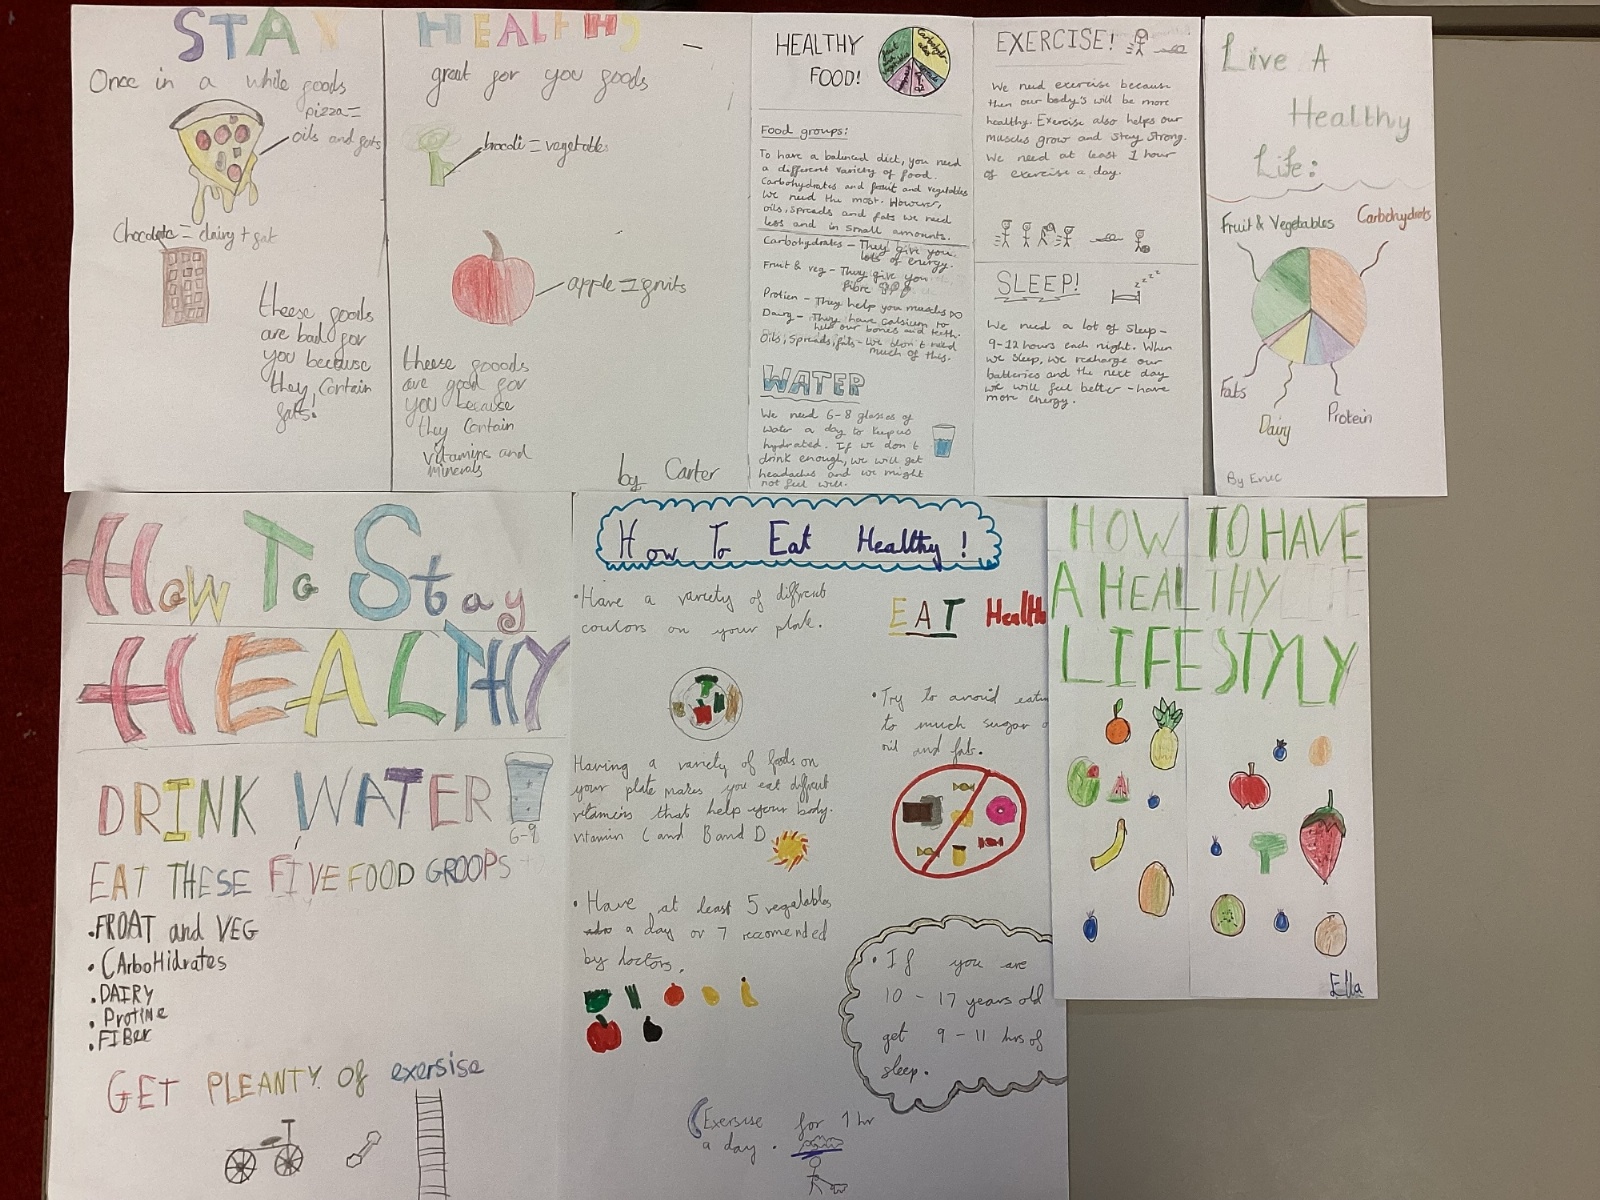 STAY HEALTHY
Once in a while foods
pizza =
oils and fats
Chocolate = dairy + fat
theese foods
are bad for
you because
they contain
fats!
great for you foods
brocoli = vegetable
apple = fruits
theese fooods
are good for
you because
they contain
vitamins and
minerals
by Carter
HEALTHY
FOOD!
Food groups:
To have a balanced diet, you need
a different variety of food.
Carbohydrates and fruit and vegetables
we need the most. However,
oils, spreads and fats we need
less and in small amounts.
Carbohydrates - They give you
lots of energy.
Fruit & veg - They give you
fibre
Protien - They help you muscles
Dairy - They have calsium to
help our bones and teeth.
Oils, Spreads, fats - We don't need
much of this.
WATER
We need 6-8 glasses of
water a day to keep us
hydrated. If we don't
drink enough, we will get
headaches and we might
not feel well.
EXERCISE!
We need exercise because
then our body's will be more
healthy. Exercise also helps our
muscles grow and stay strong.
We need at least 1 hour
of exercise a day.
SLEEP!
zzz
We need a lot of sleep -
9-12 hours each night. When
we sleep, we recharge our
batteries and the next day
we will feel better - have
more energy.
Live A
Healthy
Life:
Fruit & Vegetables
Carbohydrates
Fats
Dairy
Protein
By
How To Stay
HEALTHY
DRINK WATER
EAT THESE FIVE FOOD GROOPS
• FROAT and VEG
• CArboHidrates
• DAIRY
• Protine
• FIBer
GET PLEANTY OF exersise
How To Eat Healthy!
• Have a variety of diffrent
coulors on your plate.
Having a variety of foods on
your plate makes you eat diffrent
vitamins that help your body.
vitamin C and B and D.
• Have at least 5 vegatables
a day or 7 reccomended
by doctors.
EAT Health
• Try to avoid eatin
to much sugar
oil and fats.
• If you are
10 - 17 years old
get 9 - 11 hrs of
sleep.
Exersise for 1 hr
a day.
HOW TO HAVE
A HEALTHY LIFE
LIFESTYLY
Ella